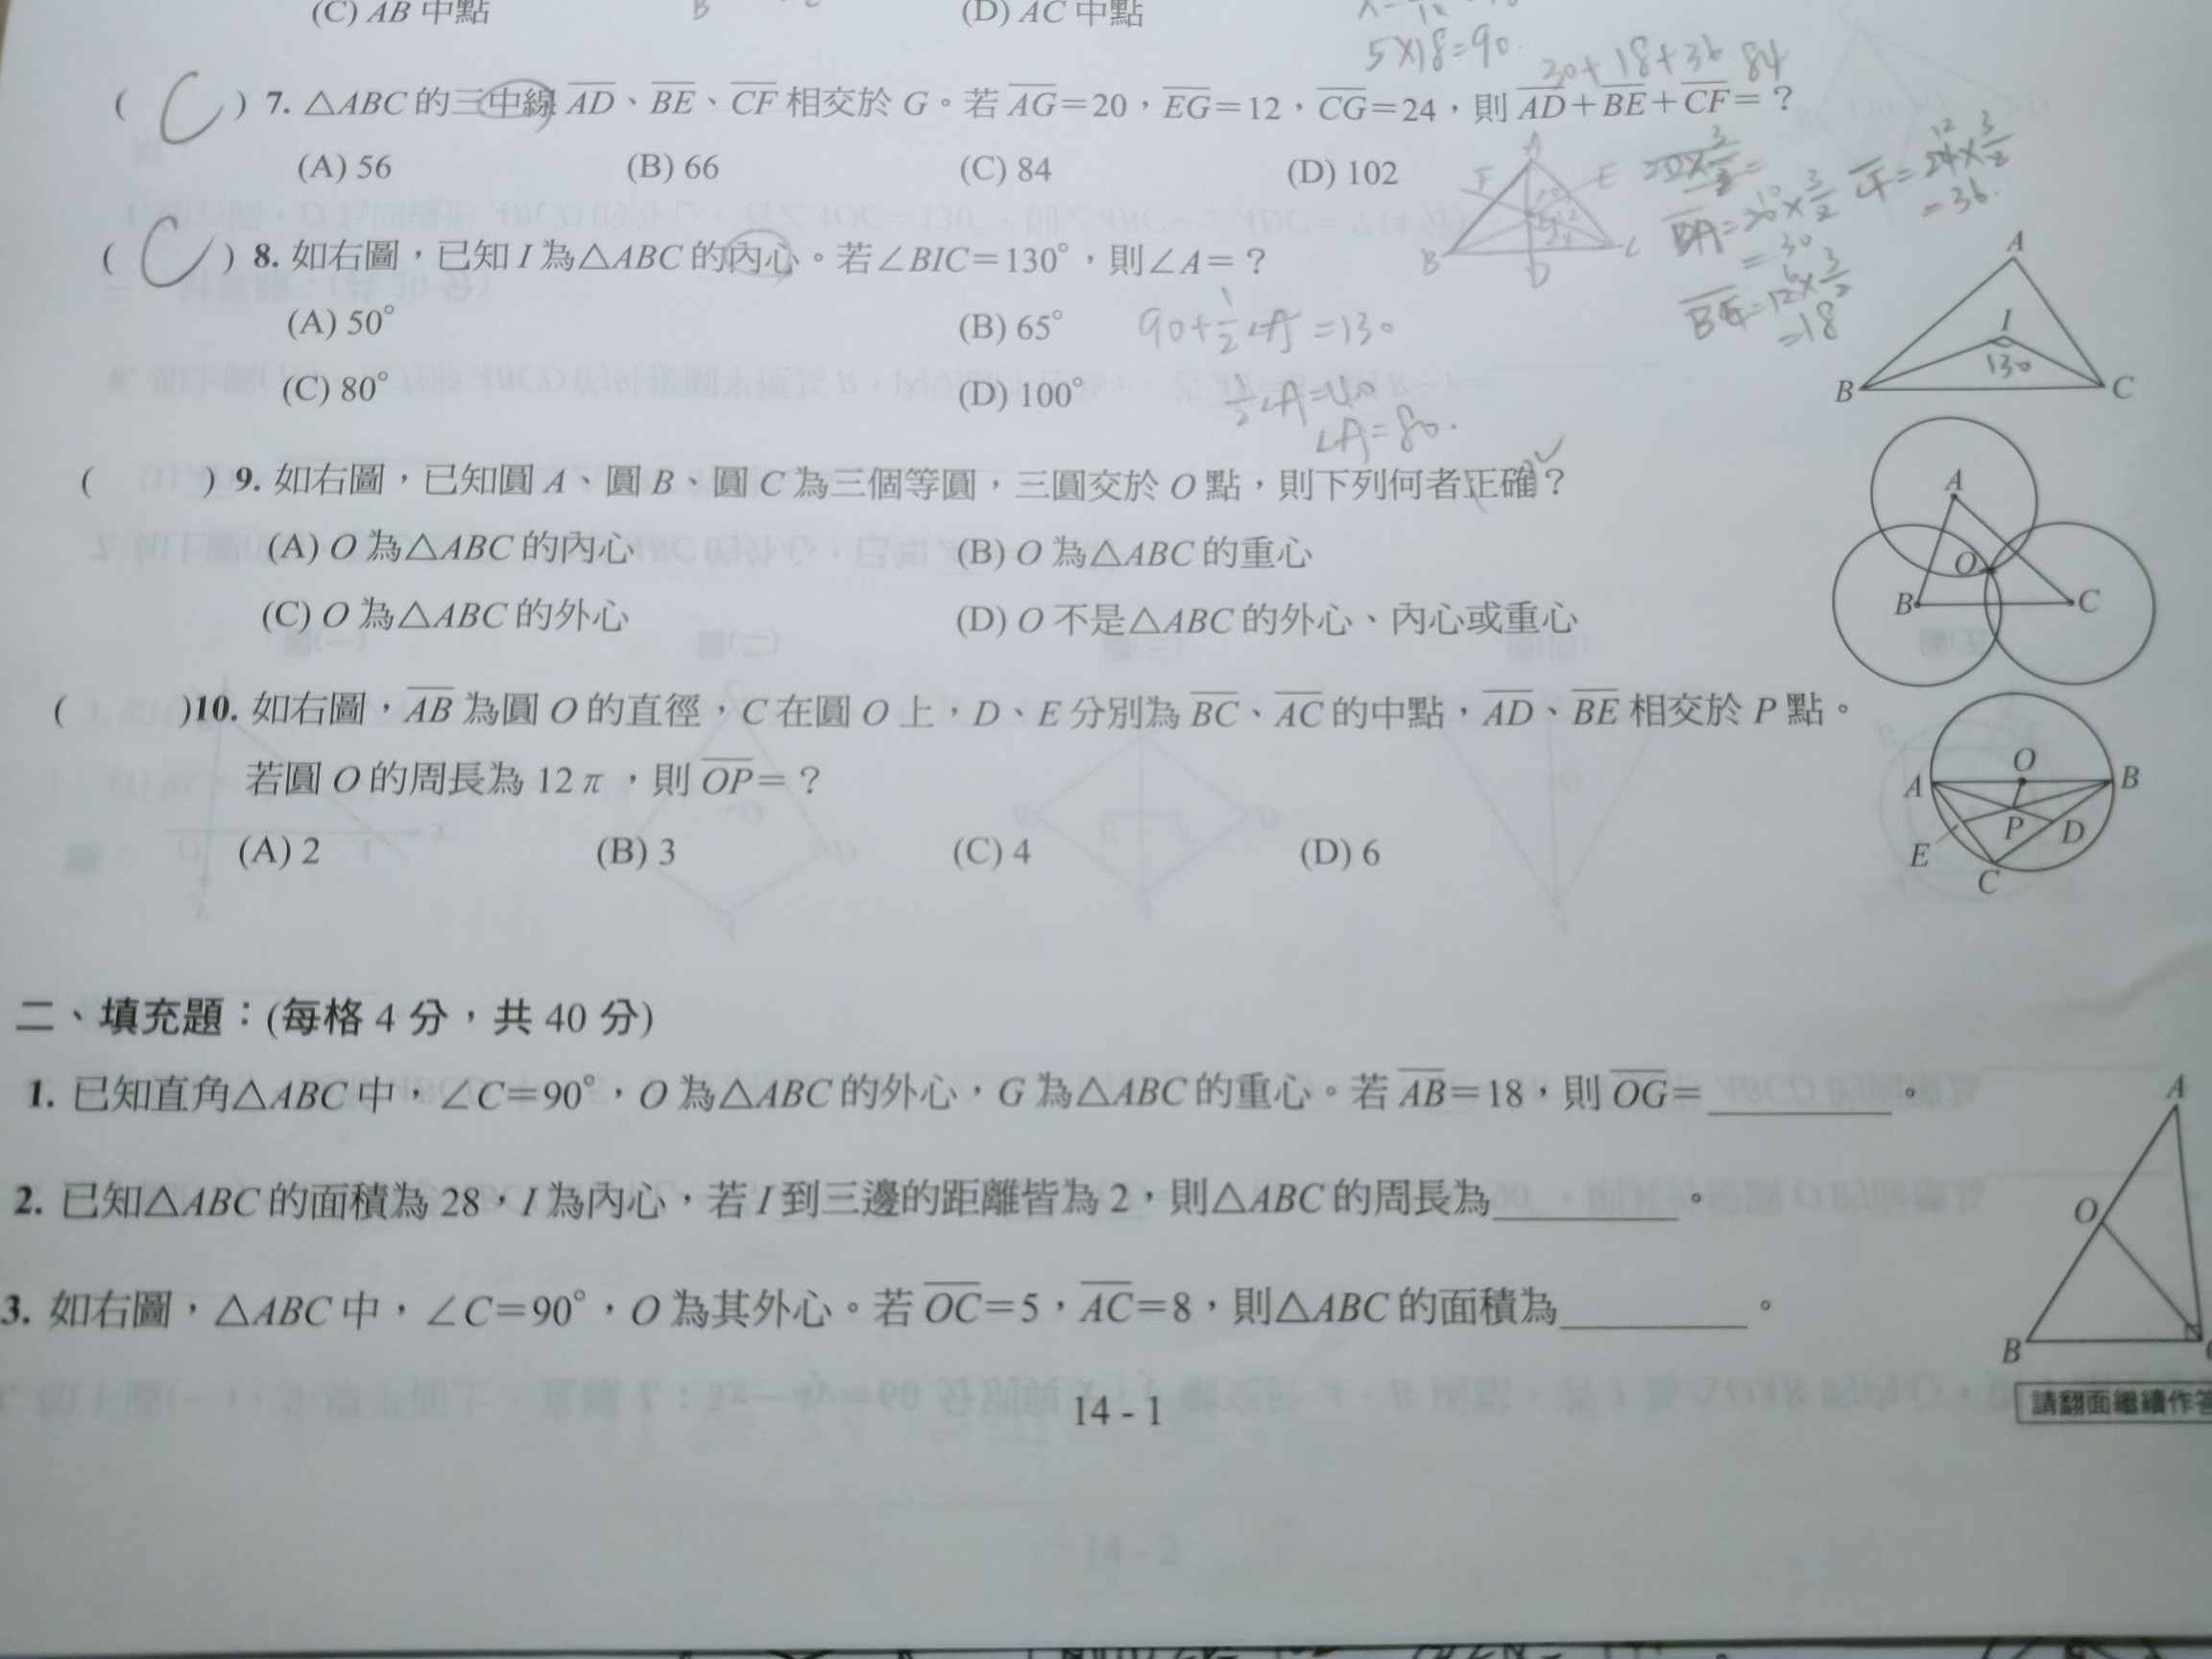 (C) AB 中點 (D) AC 中點
5×18=90.
30+18+36 84
( C ) 7. △ABC 的三中線 AD、BE、CF 相交於 G。若 AG=20，EG=12，CG=24，則 AD+BE+CF=？
(A) 56 (B) 66 (C) 84 (D) 102
A F E B D C
20×3/2=
DA=20×3/2 10
=30
BE=12×3/2 6
=18
CF=24×3/2 12
=36.
( C ) 8. 如右圖，已知 I 為△ABC 的內心。若∠BIC=130°，則∠A=？
(A) 50° (B) 65°
(C) 80° (D) 100°
90+1/2∠A=130
1/2∠A=40
∠A=80.
A
I
130
B C
( ) 9. 如右圖，已知圓 A、圓 B、圓 C 為三個等圓，三圓交於 O 點，則下列何者正確？
(A) O 為△ABC 的內心 (B) O 為△ABC 的重心
(C) O 為△ABC 的外心 (D) O 不是△ABC 的外心、內心或重心
A
O
B C
( )10. 如右圖，AB 為圓 O 的直徑，C 在圓 O 上，D、E 分別為 BC、AC 的中點，AD、BE 相交於 P 點。
若圓 O 的周長為 12π，則 OP=？
(A) 2 (B) 3 (C) 4 (D) 6
O
A B
P D
E
C
二、填充題：(每格 4 分，共 40 分)
1. 已知直角△ABC 中，∠C=90°，O 為△ABC 的外心，G 為△ABC 的重心。若 AB=18，則 OG=________。
2. 已知△ABC 的面積為 28，I 為內心，若 I 到三邊的距離皆為 2，則△ABC 的周長為________。
3. 如右圖，△ABC 中，∠C=90°，O 為其外心。若 OC=5，AC=8，則△ABC 的面積為________。
A
O
B
14 - 1
請翻面繼續作答
14 - 2